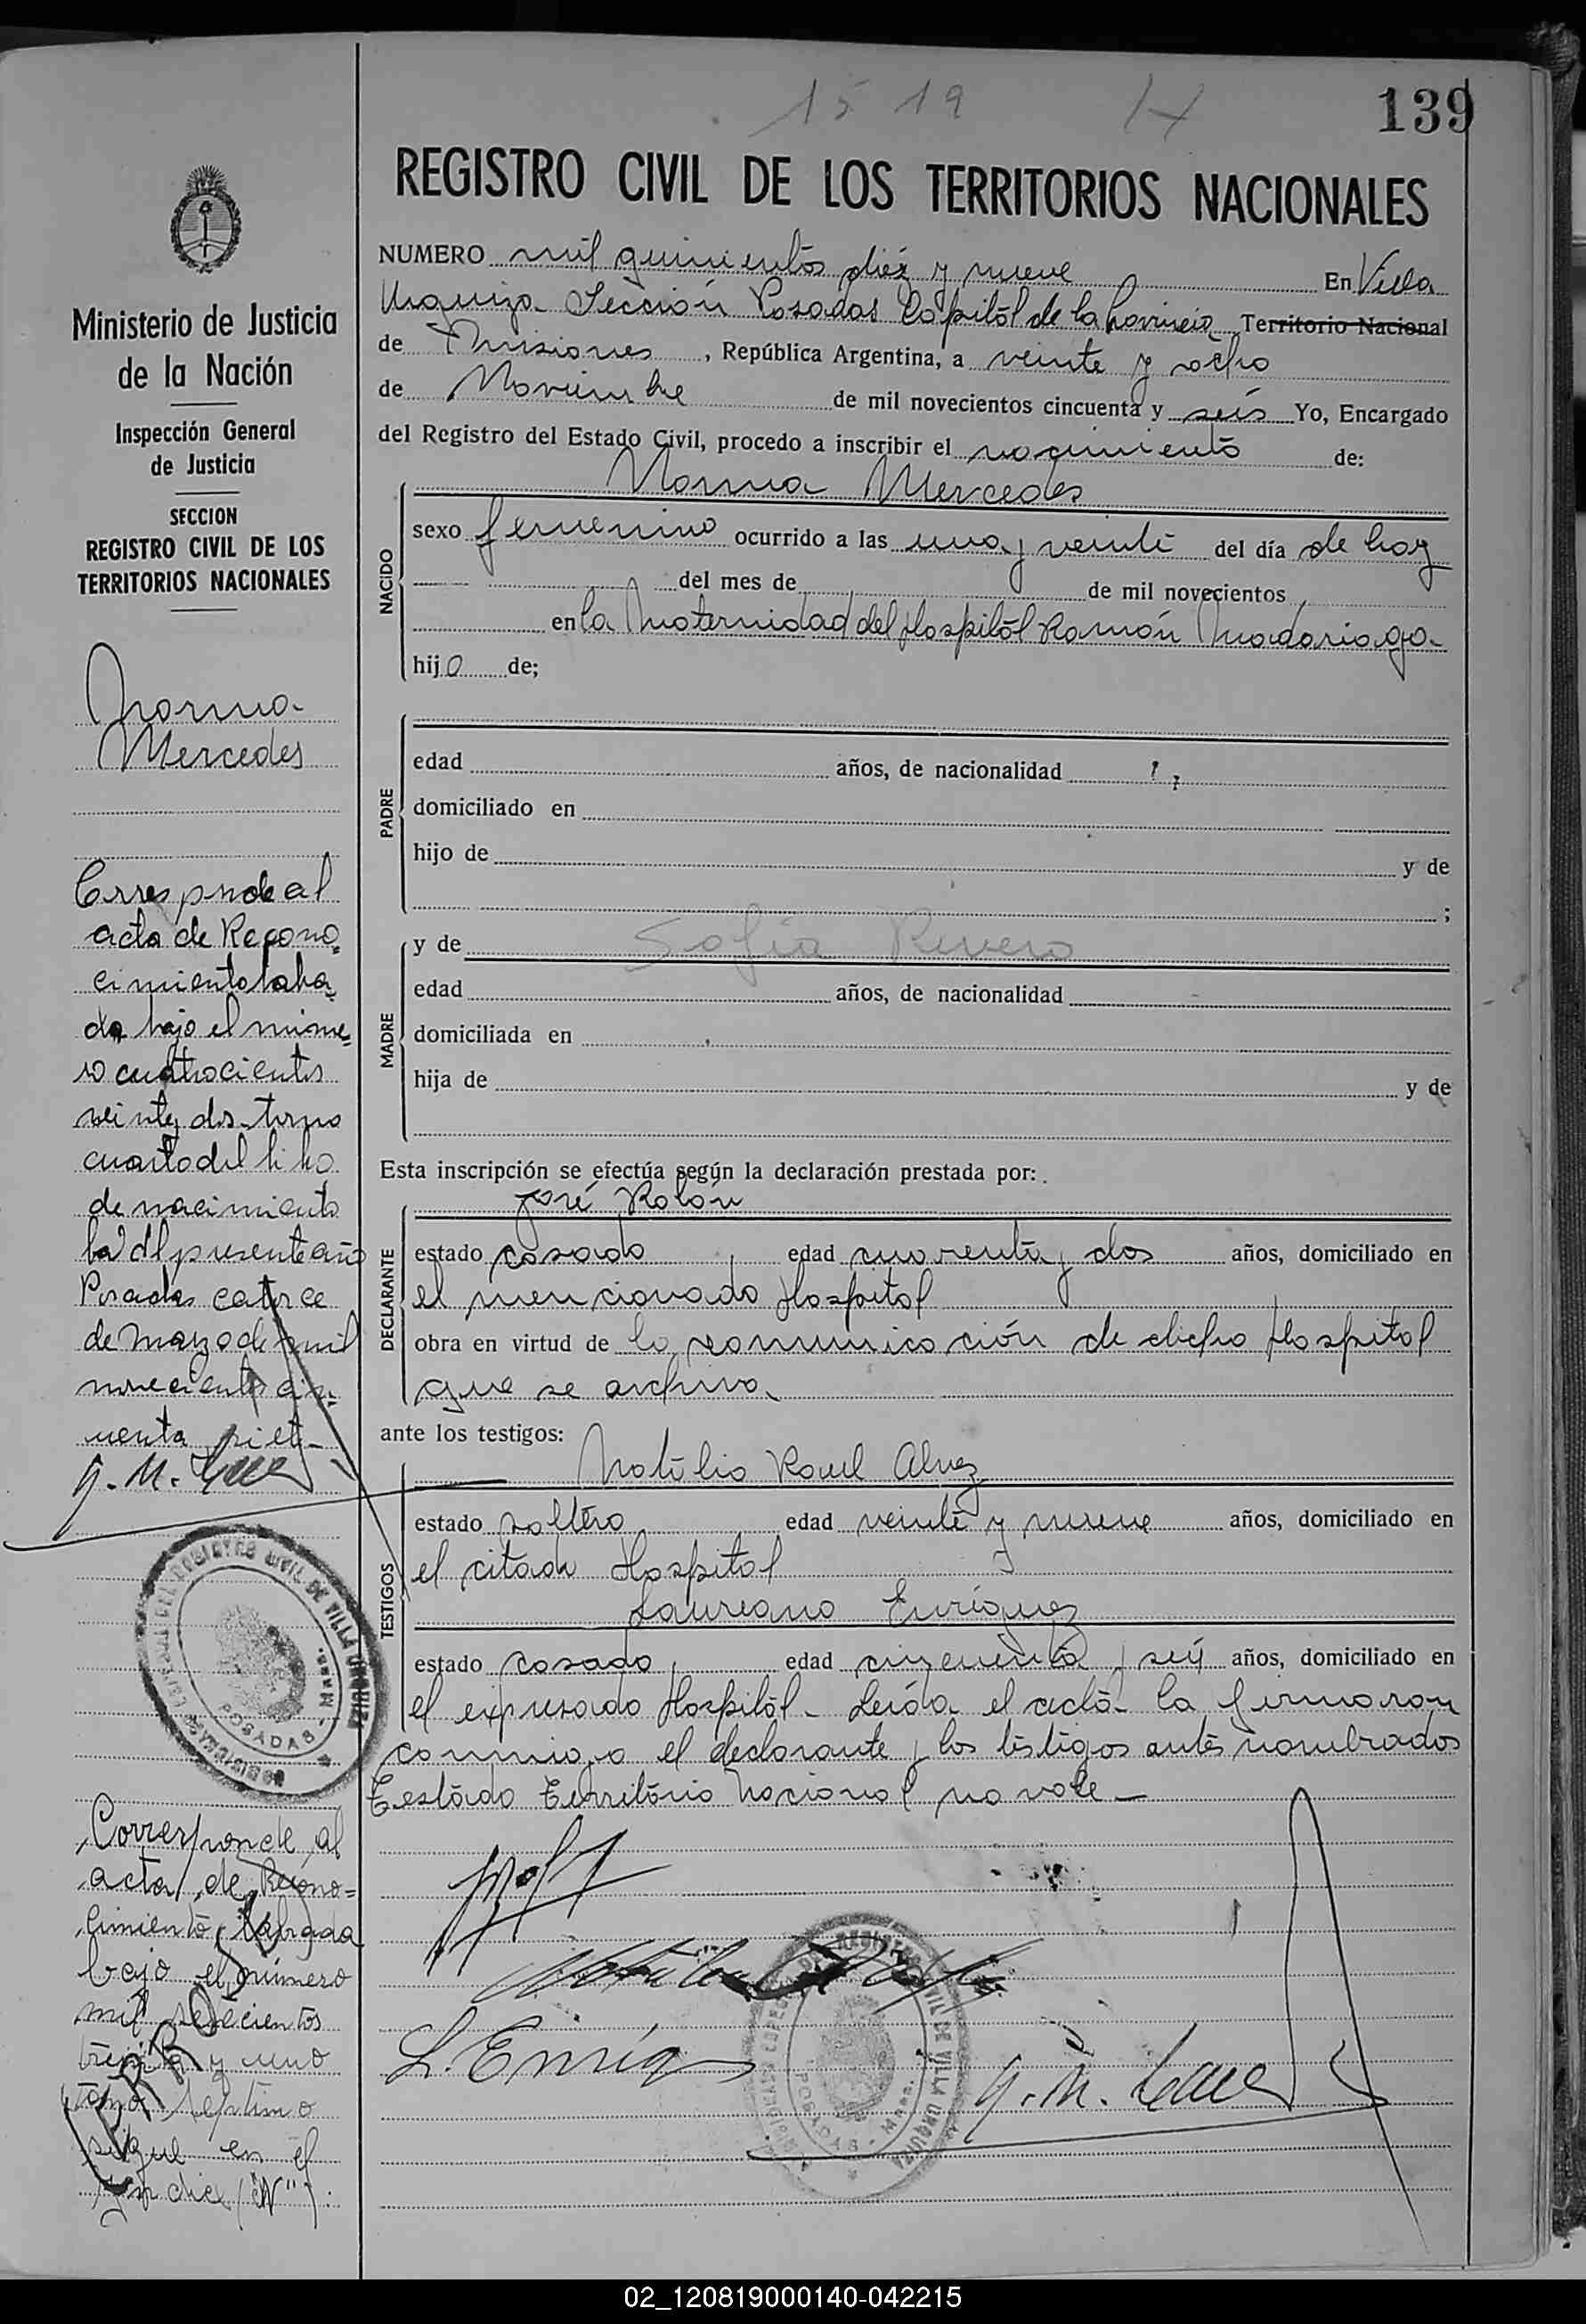 15 19 H
139
REGISTRO CIVIL DE LOS TERRITORIOS NACIONALES
NUMERO mil quinientos diéz y nueve En Villa
Urquiza Sección Posadas Capital de la Provincia Territorio Nacional
de Misiones, República Argentina, a veinte y ocho
de Noviembre de mil novecientos cincuenta y seis Yo, Encargado
del Registro del Estado Civil, procedo a inscribir el nacimiento de:
Norma Mercedes
NACIDO
sexo femenino ocurrido a las una y veinte del día de hoy
del mes de de mil novecientos
en la Maternidad del Hospital Ramón Madariaga
hija de;
PADRE
edad años, de nacionalidad
domiciliado en
hijo de y de
;
MADRE
y de Sofia Rivero
edad años, de nacionalidad
domiciliada en
hija de y de
Esta inscripción se efectúa según la declaración prestada por:
José Rolón
DECLARANTE
estado casado, edad cuarenta y dos años, domiciliado en
el mencionado Hospital
obra en virtud de la comunicación de dicho Hospital
que se archiva
ante los testigos:
Natalio Raul Alvez
TESTIGOS
estado soltero edad veinte y nueve años, domiciliado en
el citado Hospital
Laureano Enriquez
estado casado, edad cincuenta y seis años, domiciliado en
el expresado Hospital - Leida el acta la firmaron
conmigo el declarante y los testigos antes nombrados
Testado Territorio Nacional no vale
L. Enriq
Ministerio de Justicia
de la Nación
Inspección General
de Justicia
SECCION
REGISTRO CIVIL DE LOS
TERRITORIOS NACIONALES
Norma
Mercedes
Corresponde al
acta de Recono=
cimiento labra=
da bajo el núme=
ro cuatrocientos
veinte y dos tomo
cuarto del libro
de nacimiento
del presente año
Posadas catorce
de marzo de mil
novecientos cin=
cuenta siete
REGISTRO CIVIL DE VILLA URQUIZA
POSADAS - Mnes.
Corresponde al
acta de Recono=
cimiento labrada
bajo el número
mil seiscientos
treinta y uno
tomo septimo
sigue en el
Yndice "N".
ERROSE
REGISTRO CIVIL DE VILLA URQUIZA
POSADAS - Mnes.
02_120819000140-042215